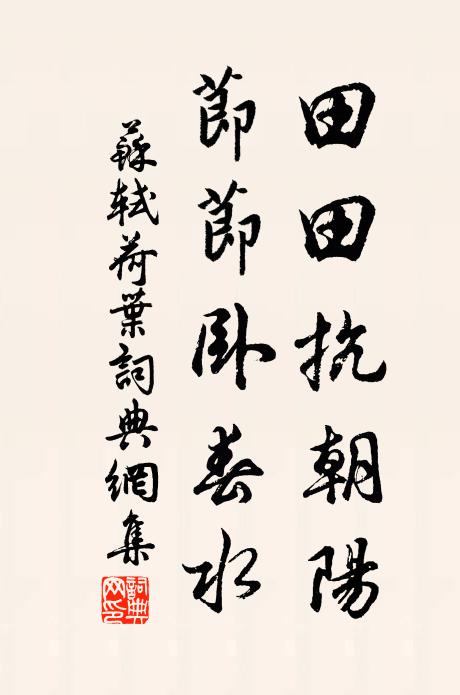 田田抗朝陽
節節臥春水
蘇軾荷葉詞典網集
詞典网印